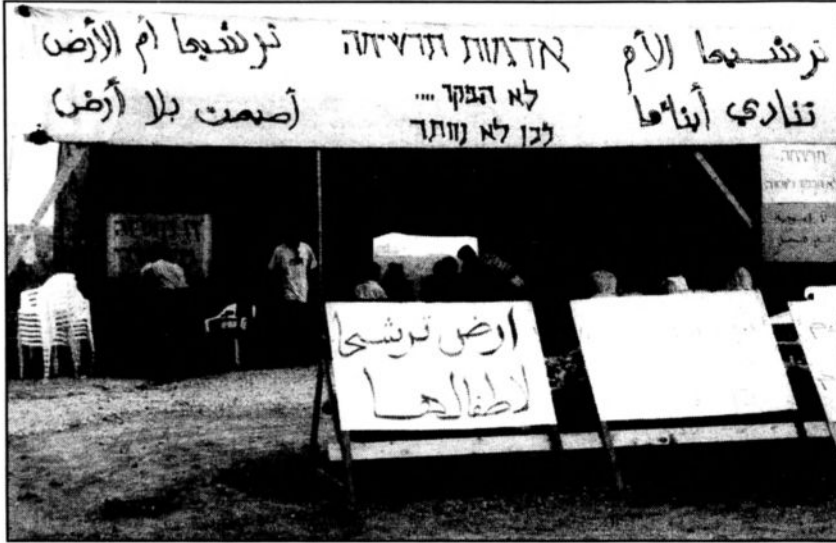 ترشيحا الأم
تنادي أبنائها
אדמות תרשיחה
לא הפקר ....
לכן לא נוותר
ترشيحا أم الأرض
أصبحت بلا أرض
תרשיחה
ارض ترشيحا
لاطفالها